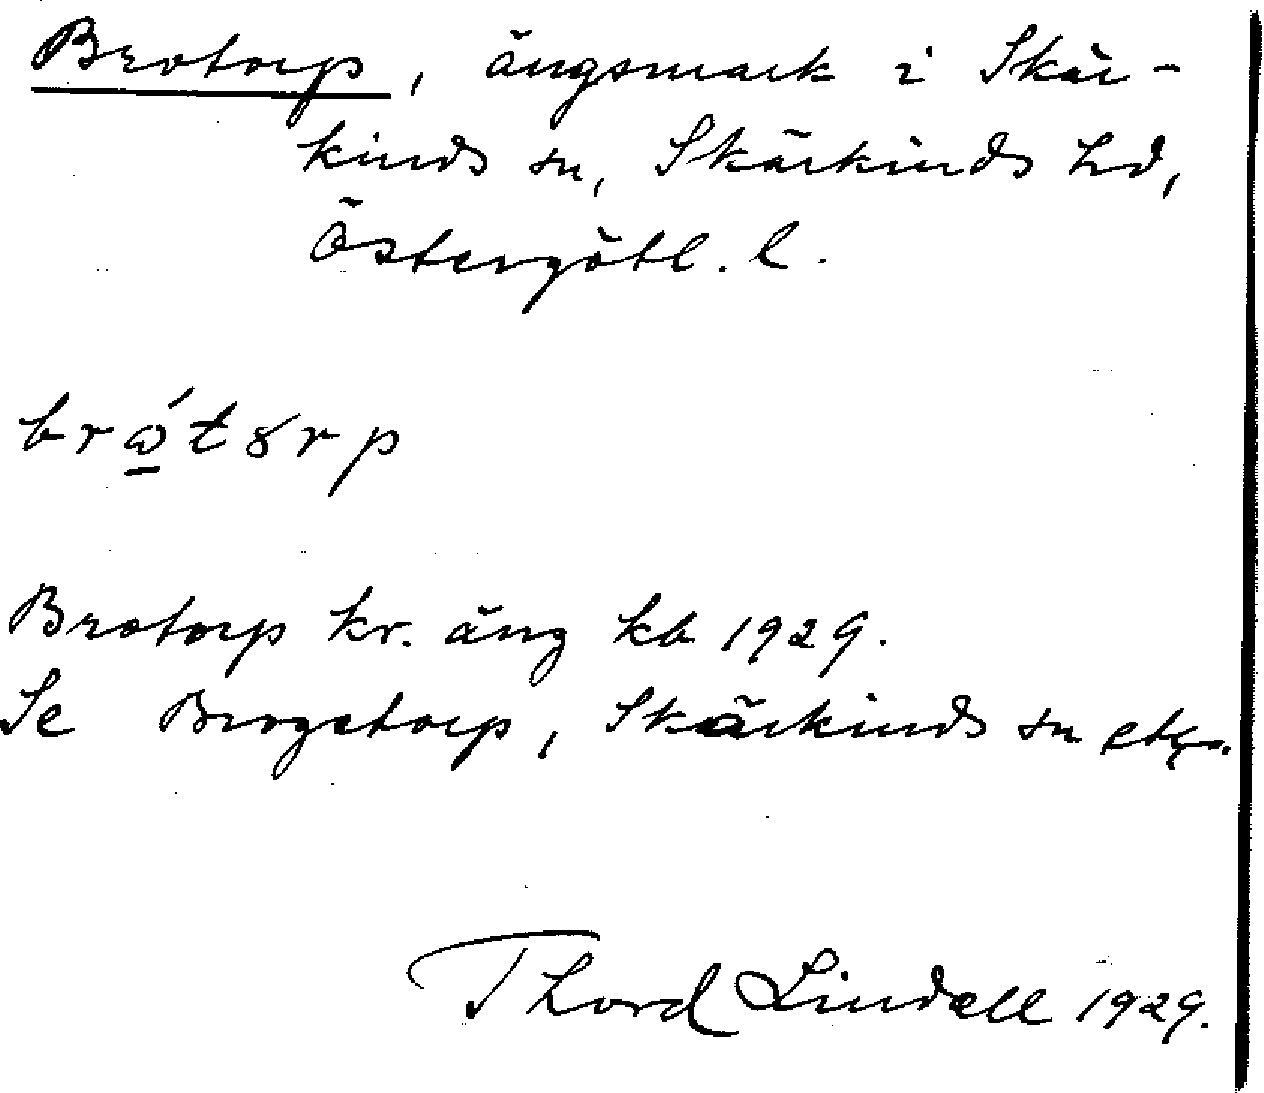 Brotorp, ängsmark i Skär-
kinds sn, Skärkinds hd,
Östergötl. l.
brώ̲tɤrp
Brotorp kr. äng kb 1929.
Se Brogetorp, Skärkinds sn
Thord Lindell 1929.